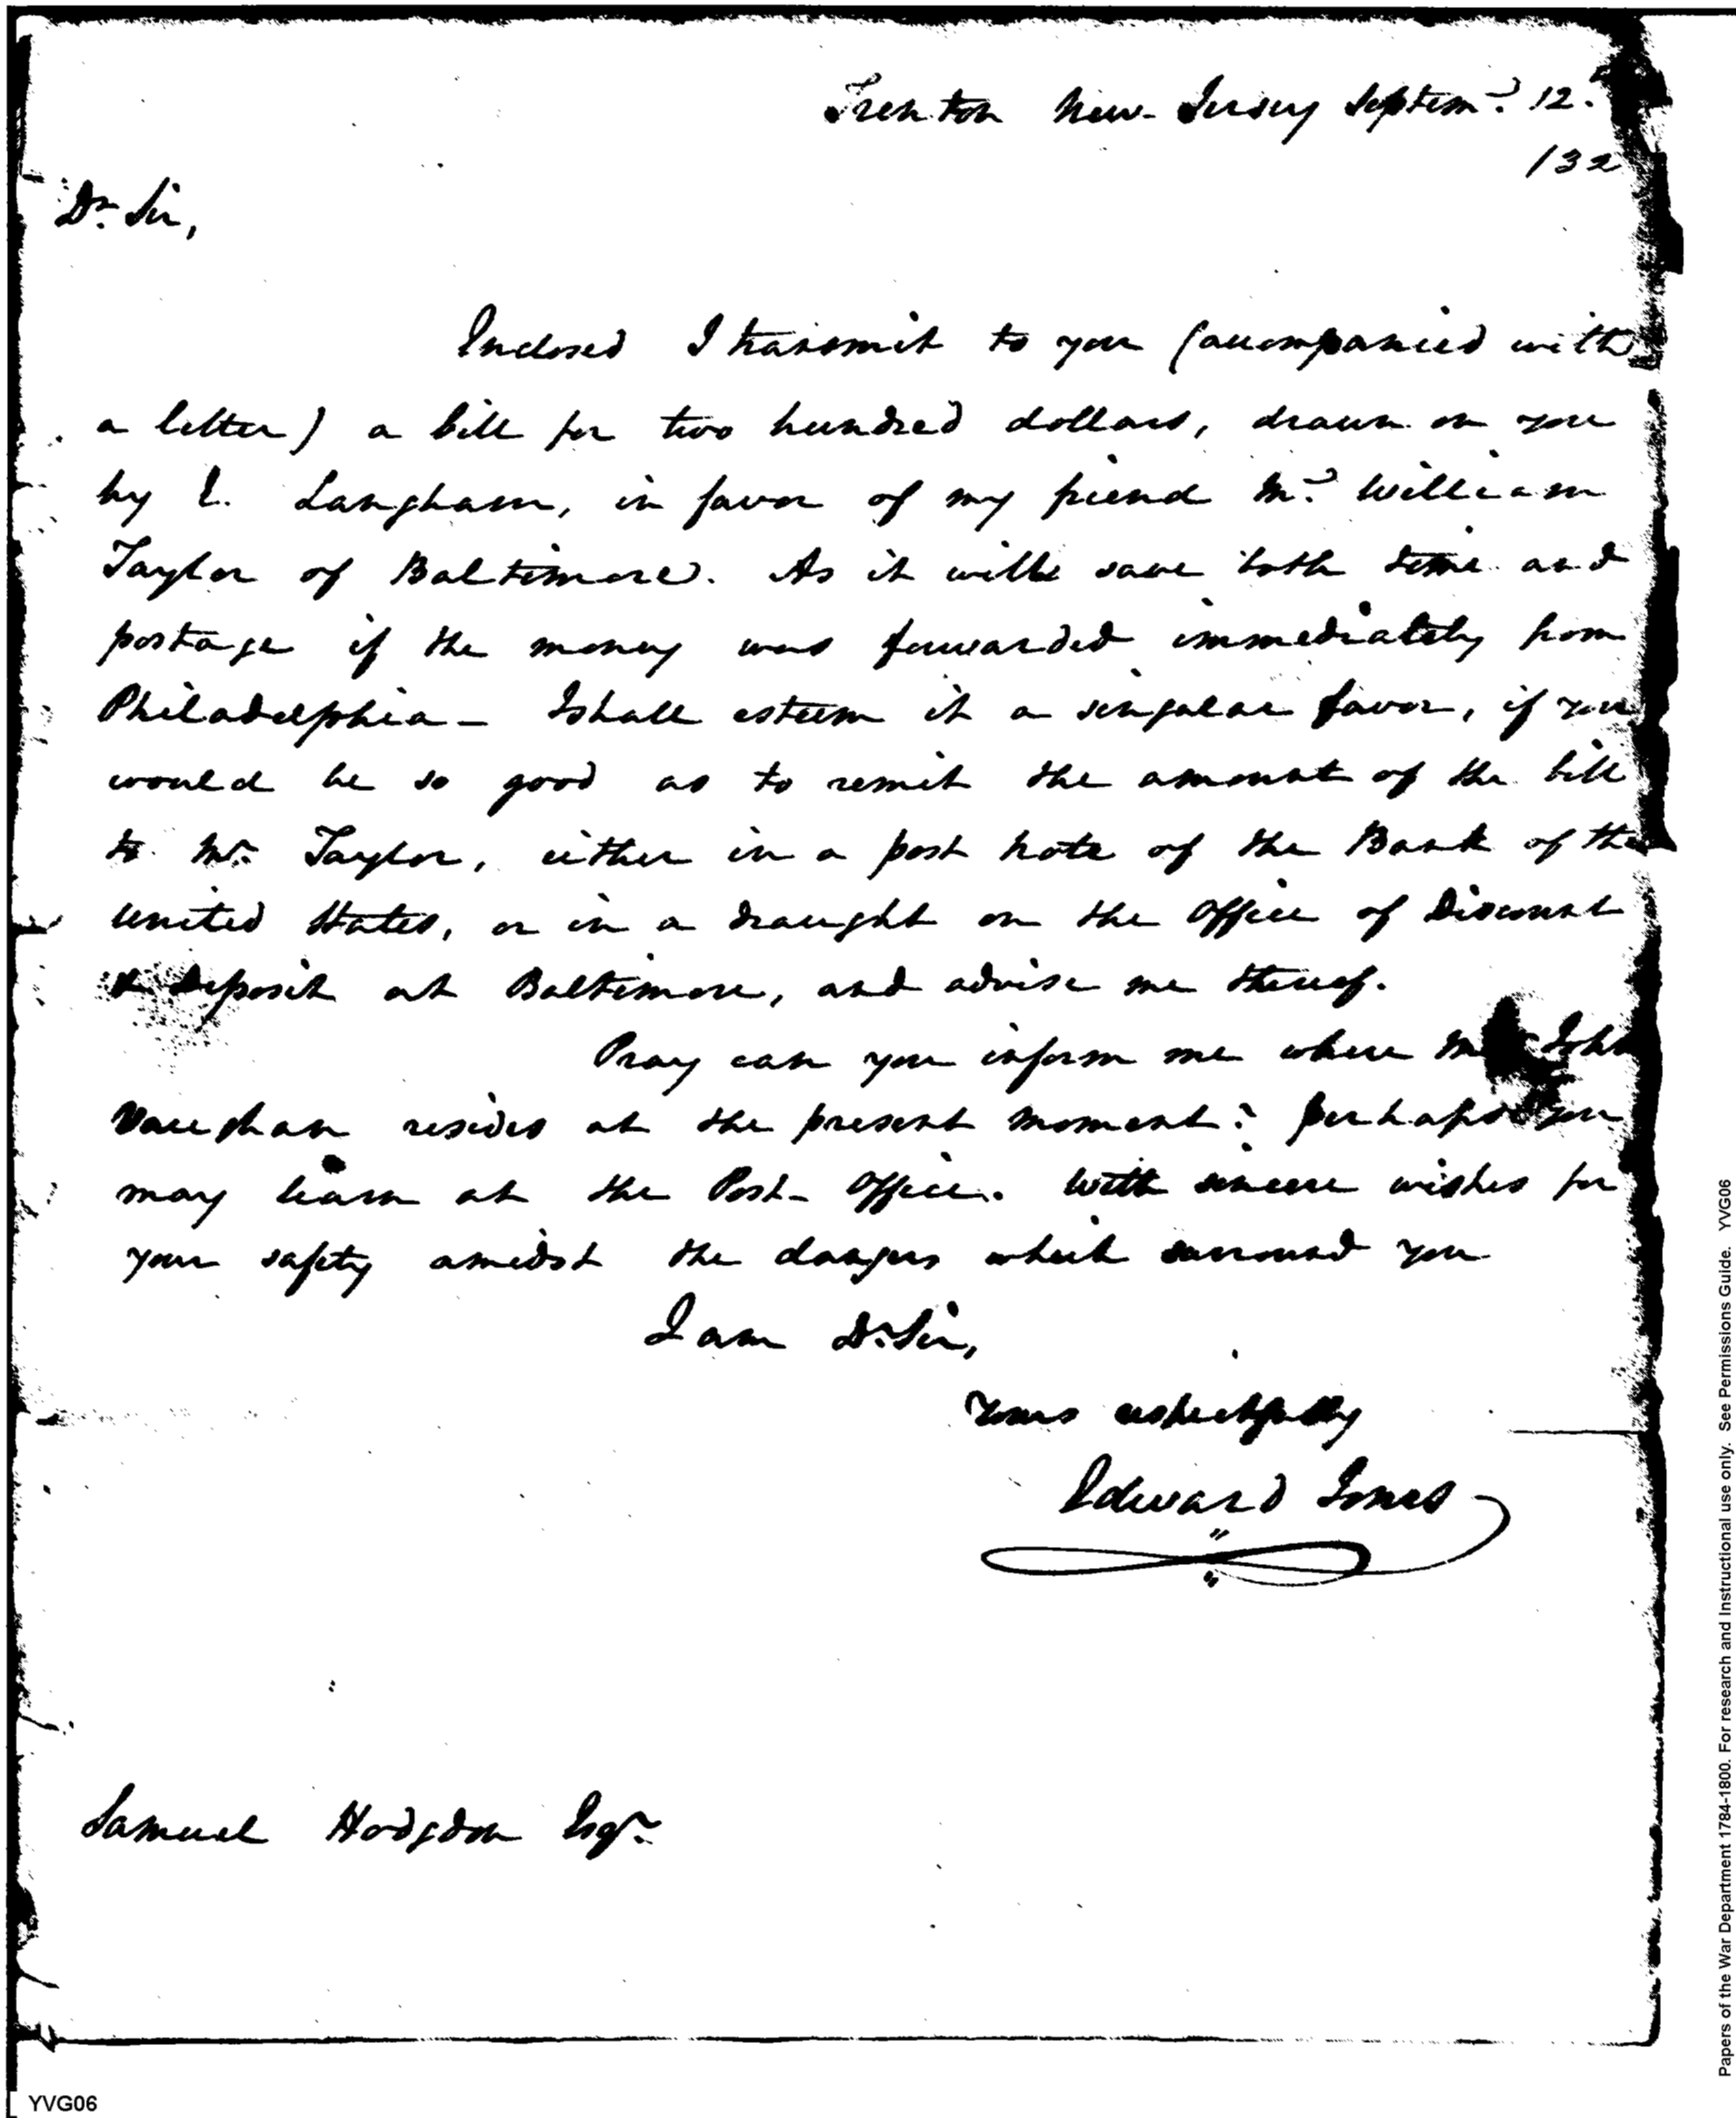 Trenton New-Jersey Septemr. 12.
132
Dr. Sir,
Inclosed I transmit to you (accompanied with
a letter) a bill for two hundred dollars, drawn on you
by E. Langham, in favor of my friend Mr. William
Taylor of Baltimore. As it will save both time and
postage if the money was forwarded immediately from
Philadelphia - I shall esteem it a singular favor, if you
would be so good as to remit the amount of the bill
to Mr. Taylor, either in a post note of the Bank of the
United States, or in a draught on the Office of Discount
& Deposit at Baltimore, and advise me thereof.
Pray can you inform me where Mr John
Vaughan resides at the present moment? perhaps you
may learn at the Post-Office. With sincere wishes for
your safety amidst the dangers which surround you
I am Dr. Sir,
Yours respectfully
Edward Jones
Samuel Hodgdon Esqr.
YVG06
Papers of the War Department 1784-1800. For research and Instructional use only. See Permissions Guide. YVG06